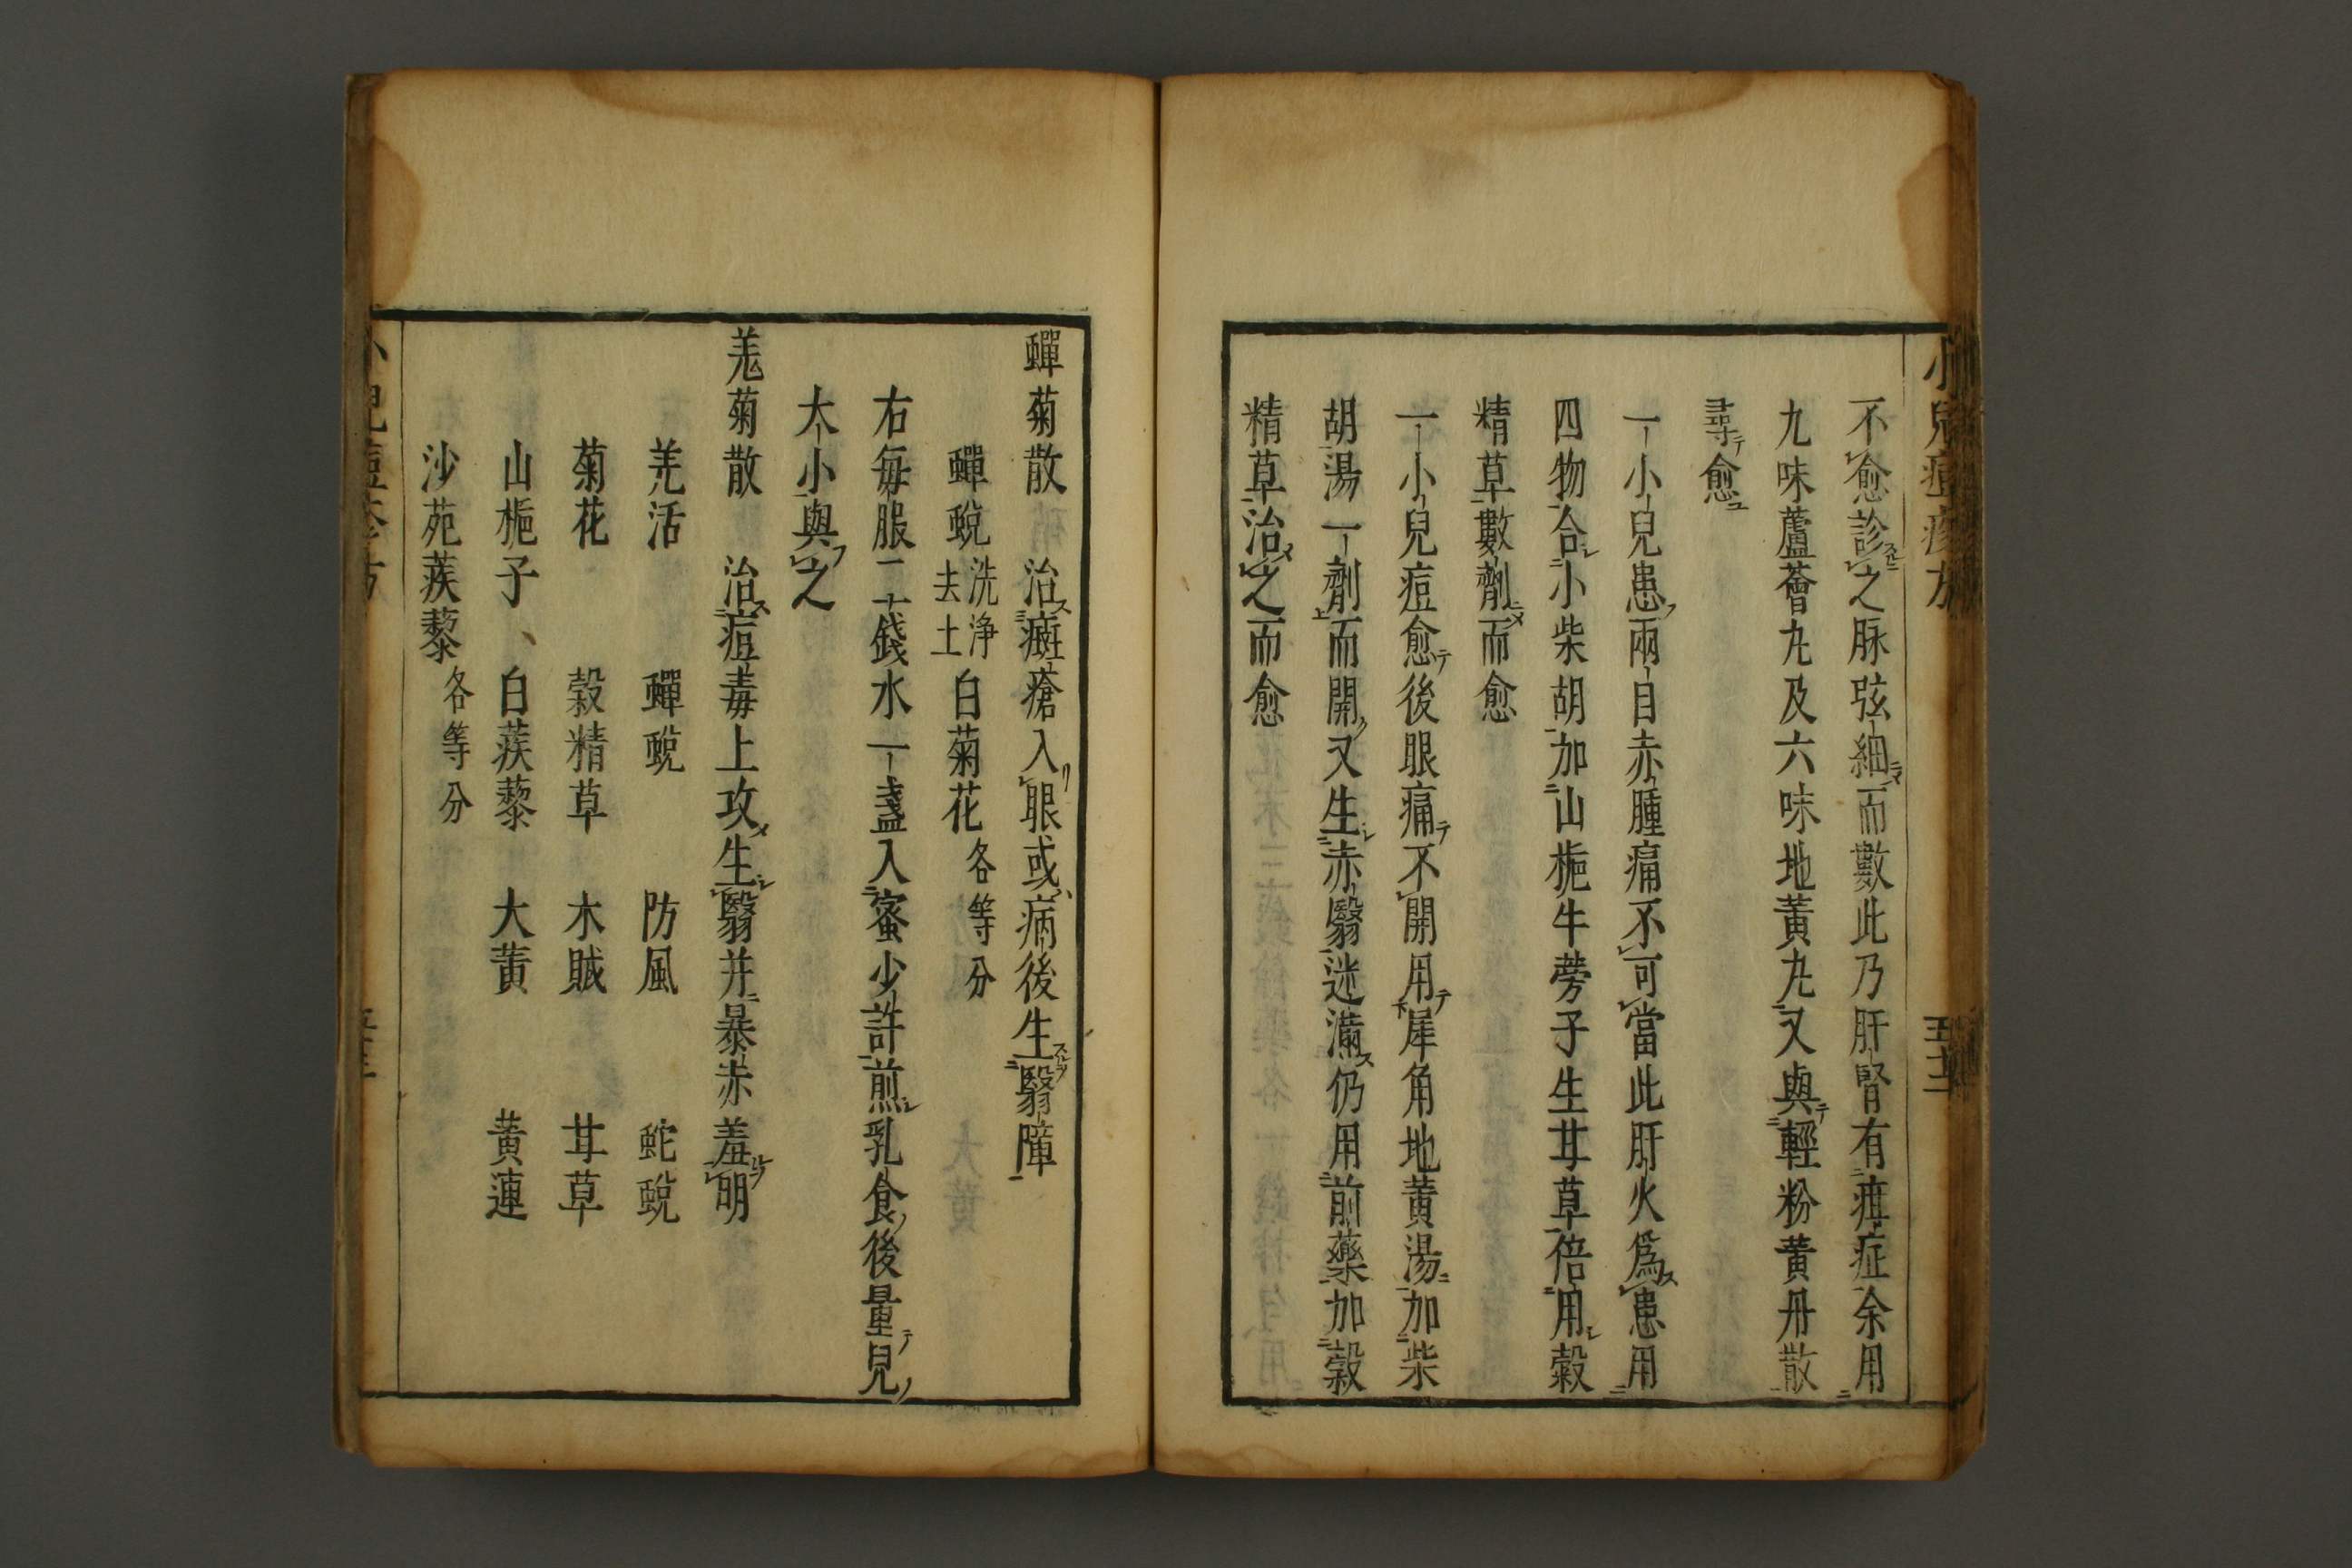 小兒痘疹方
五十二
不愈診之脉弦細而數此乃肝腎有疳症余用
九味蘆薈九及六味地黄九又與輕粉黄丹散
尋愈
一小兒患兩目赤腫痛不可當此肝火爲患用
四物合小柴胡加山梔牛蒡子生甘草倍用穀
精草數劑而愈
一小兒痘愈後眼痛不開用犀角地黄湯加柴
胡湯一劑而開又生赤翳迷滿仍用前藥加穀
精草治之而愈
蟬菊散　治癍瘡入眼或病後生翳障
蟬蛻洗浄去土　白菊花各等分
右毎服二錢水一盞入蜜少許煎乳食後量兒
大小與之
羌菊散　治痘毒上攻生翳并暴赤羞明
羌活　蟬蛻　防風　蛇蛻
菊花　穀精草　木賊　甘草
山梔子、白蒺藜　大黄　黄連
沙苑蒺藜各等分